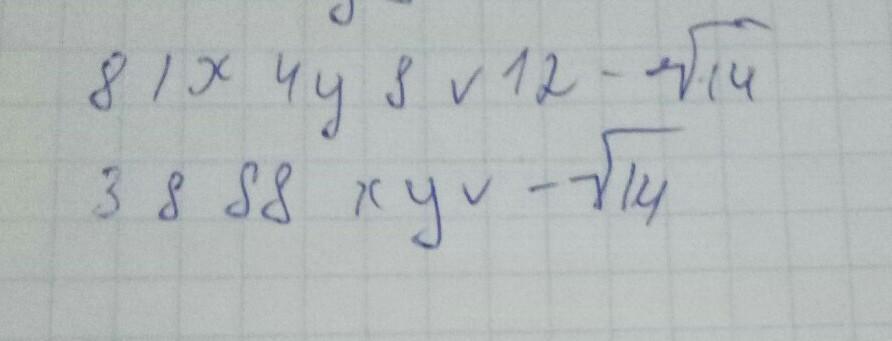 81x 4y 8 v 12 - √14
3 8 88 xyv - √14